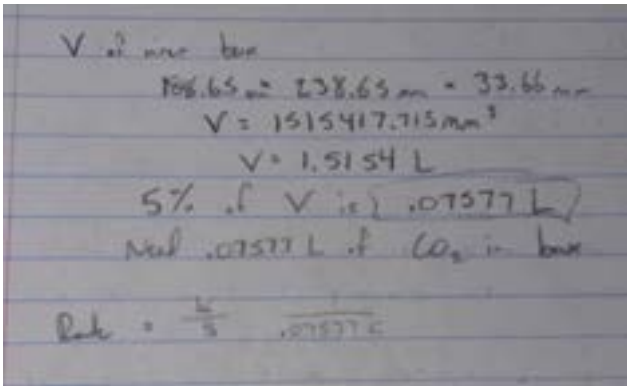 V of inner box
188.65 mm * 238.65 mm * 33.66 mm
V = 1515417.715 mm³
V = 1.5154 L
5% of V is .07577 L
Need .07577 L of CO₂ in box
Rate = L/S 1/.07577 L